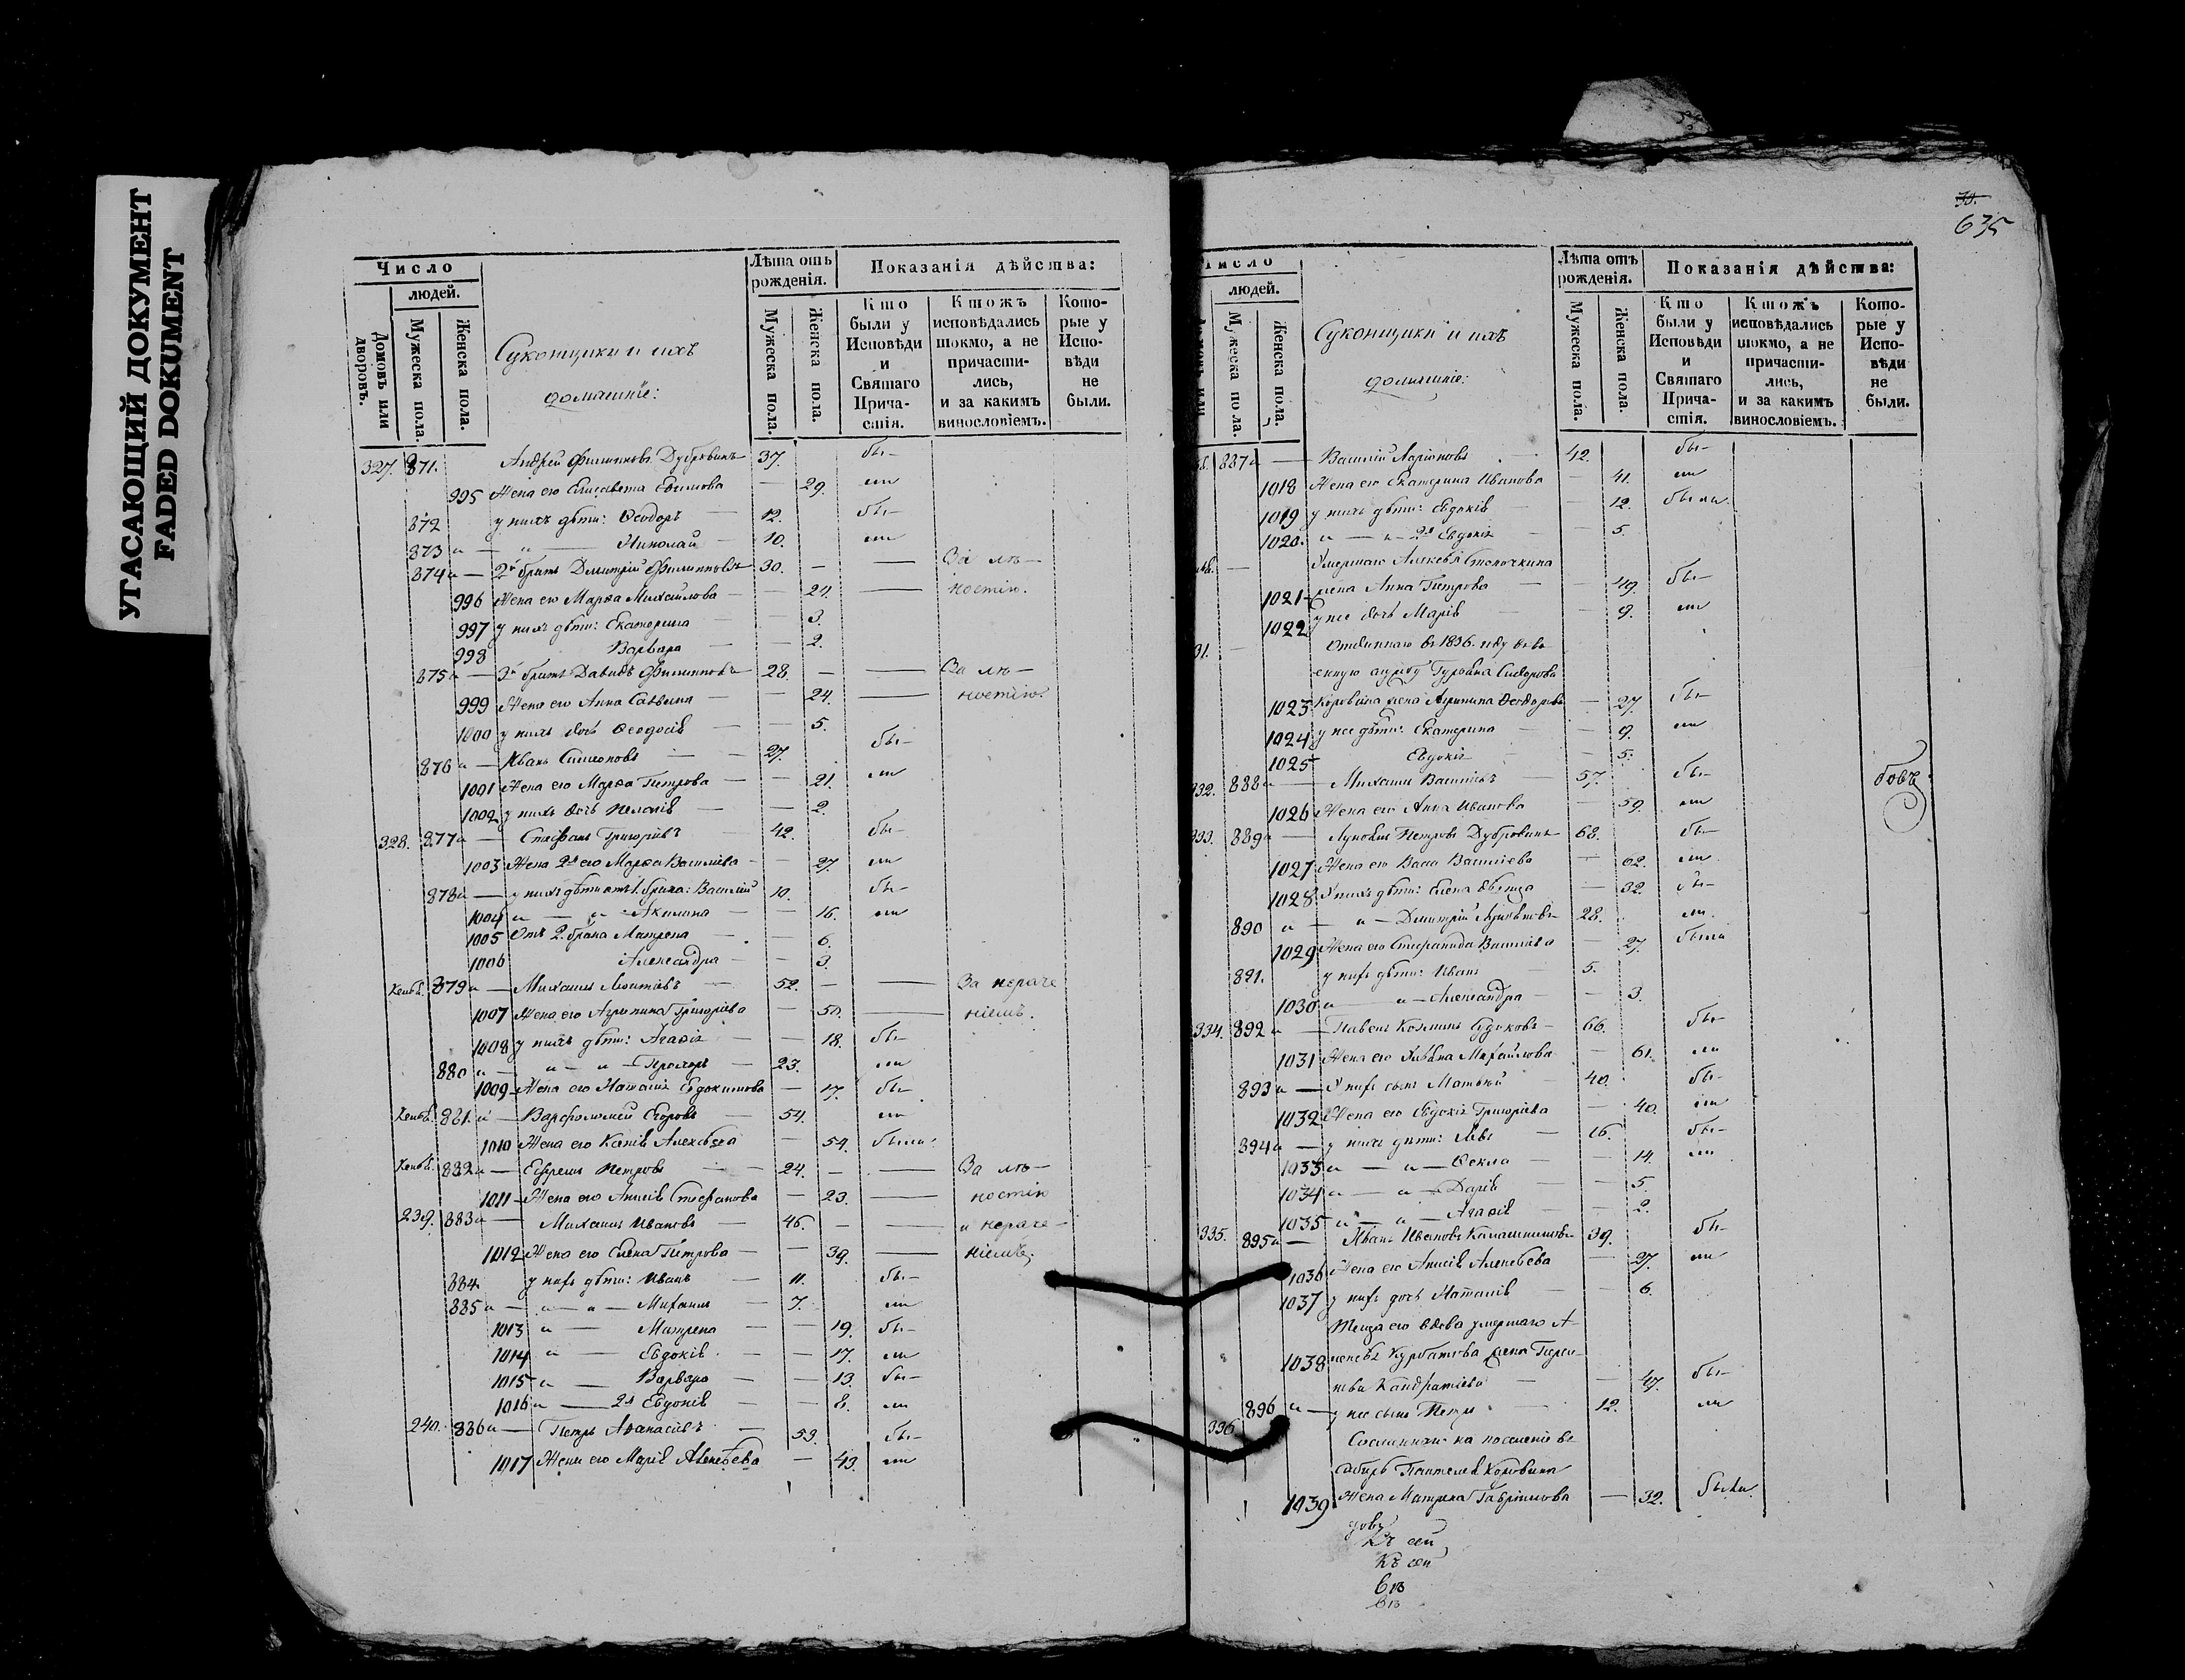 УГАСАЮЩИЙ ДОКУМЕНТ
FADED DOKUMENT
Число
людей.
Домовъ или дворовъ.
Мужеска пола.
Женска пола.
Суконщики и ихъ
домашніе:
Лѣта отъ рожденія.
Мужеска пола.
Женска пола.
Показанія дѣйства:
Кто были у Исповѣди и Святаго Причастія.
Ктожъ исповѣдались токмо, а не причастились, и за какимъ винословіемъ.
Которые у Исповѣди не были.
327. 871. Андрей Филиповъ Дубровинъ 37. бы-
995 Жена его Елисавета Ефимова 29. ли
872 у нихъ дѣти: Ѳеодоръ 12. бы-
873 Николай 10. ли
874 2й братъ Дмитрій Филипповъ 30. За лѣ-
996 Жена его Марѳа Михайлова 24. ностію.
997 у нихъ дѣти: Екатерина 3.
998 Варвара 2.
875 3й братъ Давидъ Филипповъ 28. За лѣ-
999 Жена его Анна Саввина 24. ностію.
1000 у нихъ дочь Ѳеодосія 5.
876 Иванъ Симеоновъ 27. бы-
1001 Жена его Марѳа Петрова 21. ли
1002 у нихъ дочь Пелагія 2.
328. 877 Стефанъ Григорьевъ 42. бы-
1003 Жена 2я его Марѳа Васильева 27. ли
878 у нихъ дѣти отъ 1 брака: Василій 10. бы-
1004 Акилина 16. ли
1005 Отъ 2. брака Матрена 6.
1006 Александра 3.
879 Михаилъ 52. За нераче
1007 Жена его Агрипина Григорьева 50. ніемъ.
1008 у нихъ дѣти: Агаѳія 18. бы-
880 Прохоръ 23. ли
1009 Жена его Наталія Евдокимова 17. бы-
881. Варфоломей Егоровъ 54. ли
1010 Жена его Алексѣева 54. были.
882 Ефремъ Петровъ 24. За лѣ-
1011 Жена его Анисія Стефанова 23. ностію
239. 883 Михаилъ Ивановъ 46. и нераче-
1012 Жена его Елена Петрова 39. ніемъ.
884 у нихъ дѣти: Иванъ 11. бы-
885 Михаилъ 7. ли
1013 Матрена 19. бы-
1014 Евдокія 17. ли
1015 Варвара 13. бы-
1016 2я Евдокія 8. ли
240. 886 Петръ Аѳанасьевъ 59. бы-
1017 Жена его Марія Алексѣева 43. ли
30.
635
Число
людей.
Мужеска пола.
Женска пола.
Суконщики и ихъ
домашніе:
Лѣта отъ рожденія.
Мужеска пола.
Женска пола.
Показанія дѣйства:
Кто были у Исповѣди и Святаго Причастія.
Ктожъ исповѣдались токмо, а не причастились, и за какимъ винословіемъ.
Которые у Исповѣди не были.
887 Василій Ларіоновъ 42. бы-
1018 Жена его Екатерина Иванова 41. ли
1019 у нихъ дѣти: Евдокія 12. были.
1020. 2я Евдокія 5.
Умершаго Алексѣя
1021 жена Анна Петрова 49. бы-
1022 у нее дочь Марія 9. ли
31. Отданнаго въ 1836. году въ во
енную службу Сидорова
1023 Коровина жена Агрипина Ѳеодорова 27. бы-
1024 у нее дѣти: Екатерина 9. ли
1025 Евдокія 5.
332. 888 Михаилъ Васильевъ 57. бы-
1026 Жена его Анна Иванова 59. ли
333. 889 Лукьянъ Петровъ Дубровинъ 68. бы-
1027 Жена его Васса Васильева 62. ли
1028 У нихъ дѣти: Елена дѣвица 32. бы-
890 Дмитрій Лукьяновъ 28. ли.
1029 Жена его Степанида Васильева 27. были
891. у нихъ дѣти: Иванъ 5.
1030 Александра 3.
334. 892 Павелъ Козминъ 66. бы-
1031 Жена его Михайлова 61. ли
893 У нихъ сынъ Матвѣй 40. бы-
1032 Жена его Евдокія Григорьева 40. ли
894 у нихъ дѣти: Левъ 16. бы-
1033 Ѳекла 14. ли
1034 Дарія 5.
1035 Агаѳія 2.
335. 895 Иванъ Ивановъ Калашниковъ 39. бы-
1036 Жена его Анисія Алексѣева 27. ли
1037 у нихъ дочь Наталія 6.
Теща его вдова умершаго А-
1038 лексѣя Курбатова жена
Кандратіева 47. бы-
896 у нее сынъ Петръ 12. ли
336 Сосланнаго на поселеніе въ
Сибирь Пантелея Коровина
1039 Жена Матрена Гавріилова 32. были.